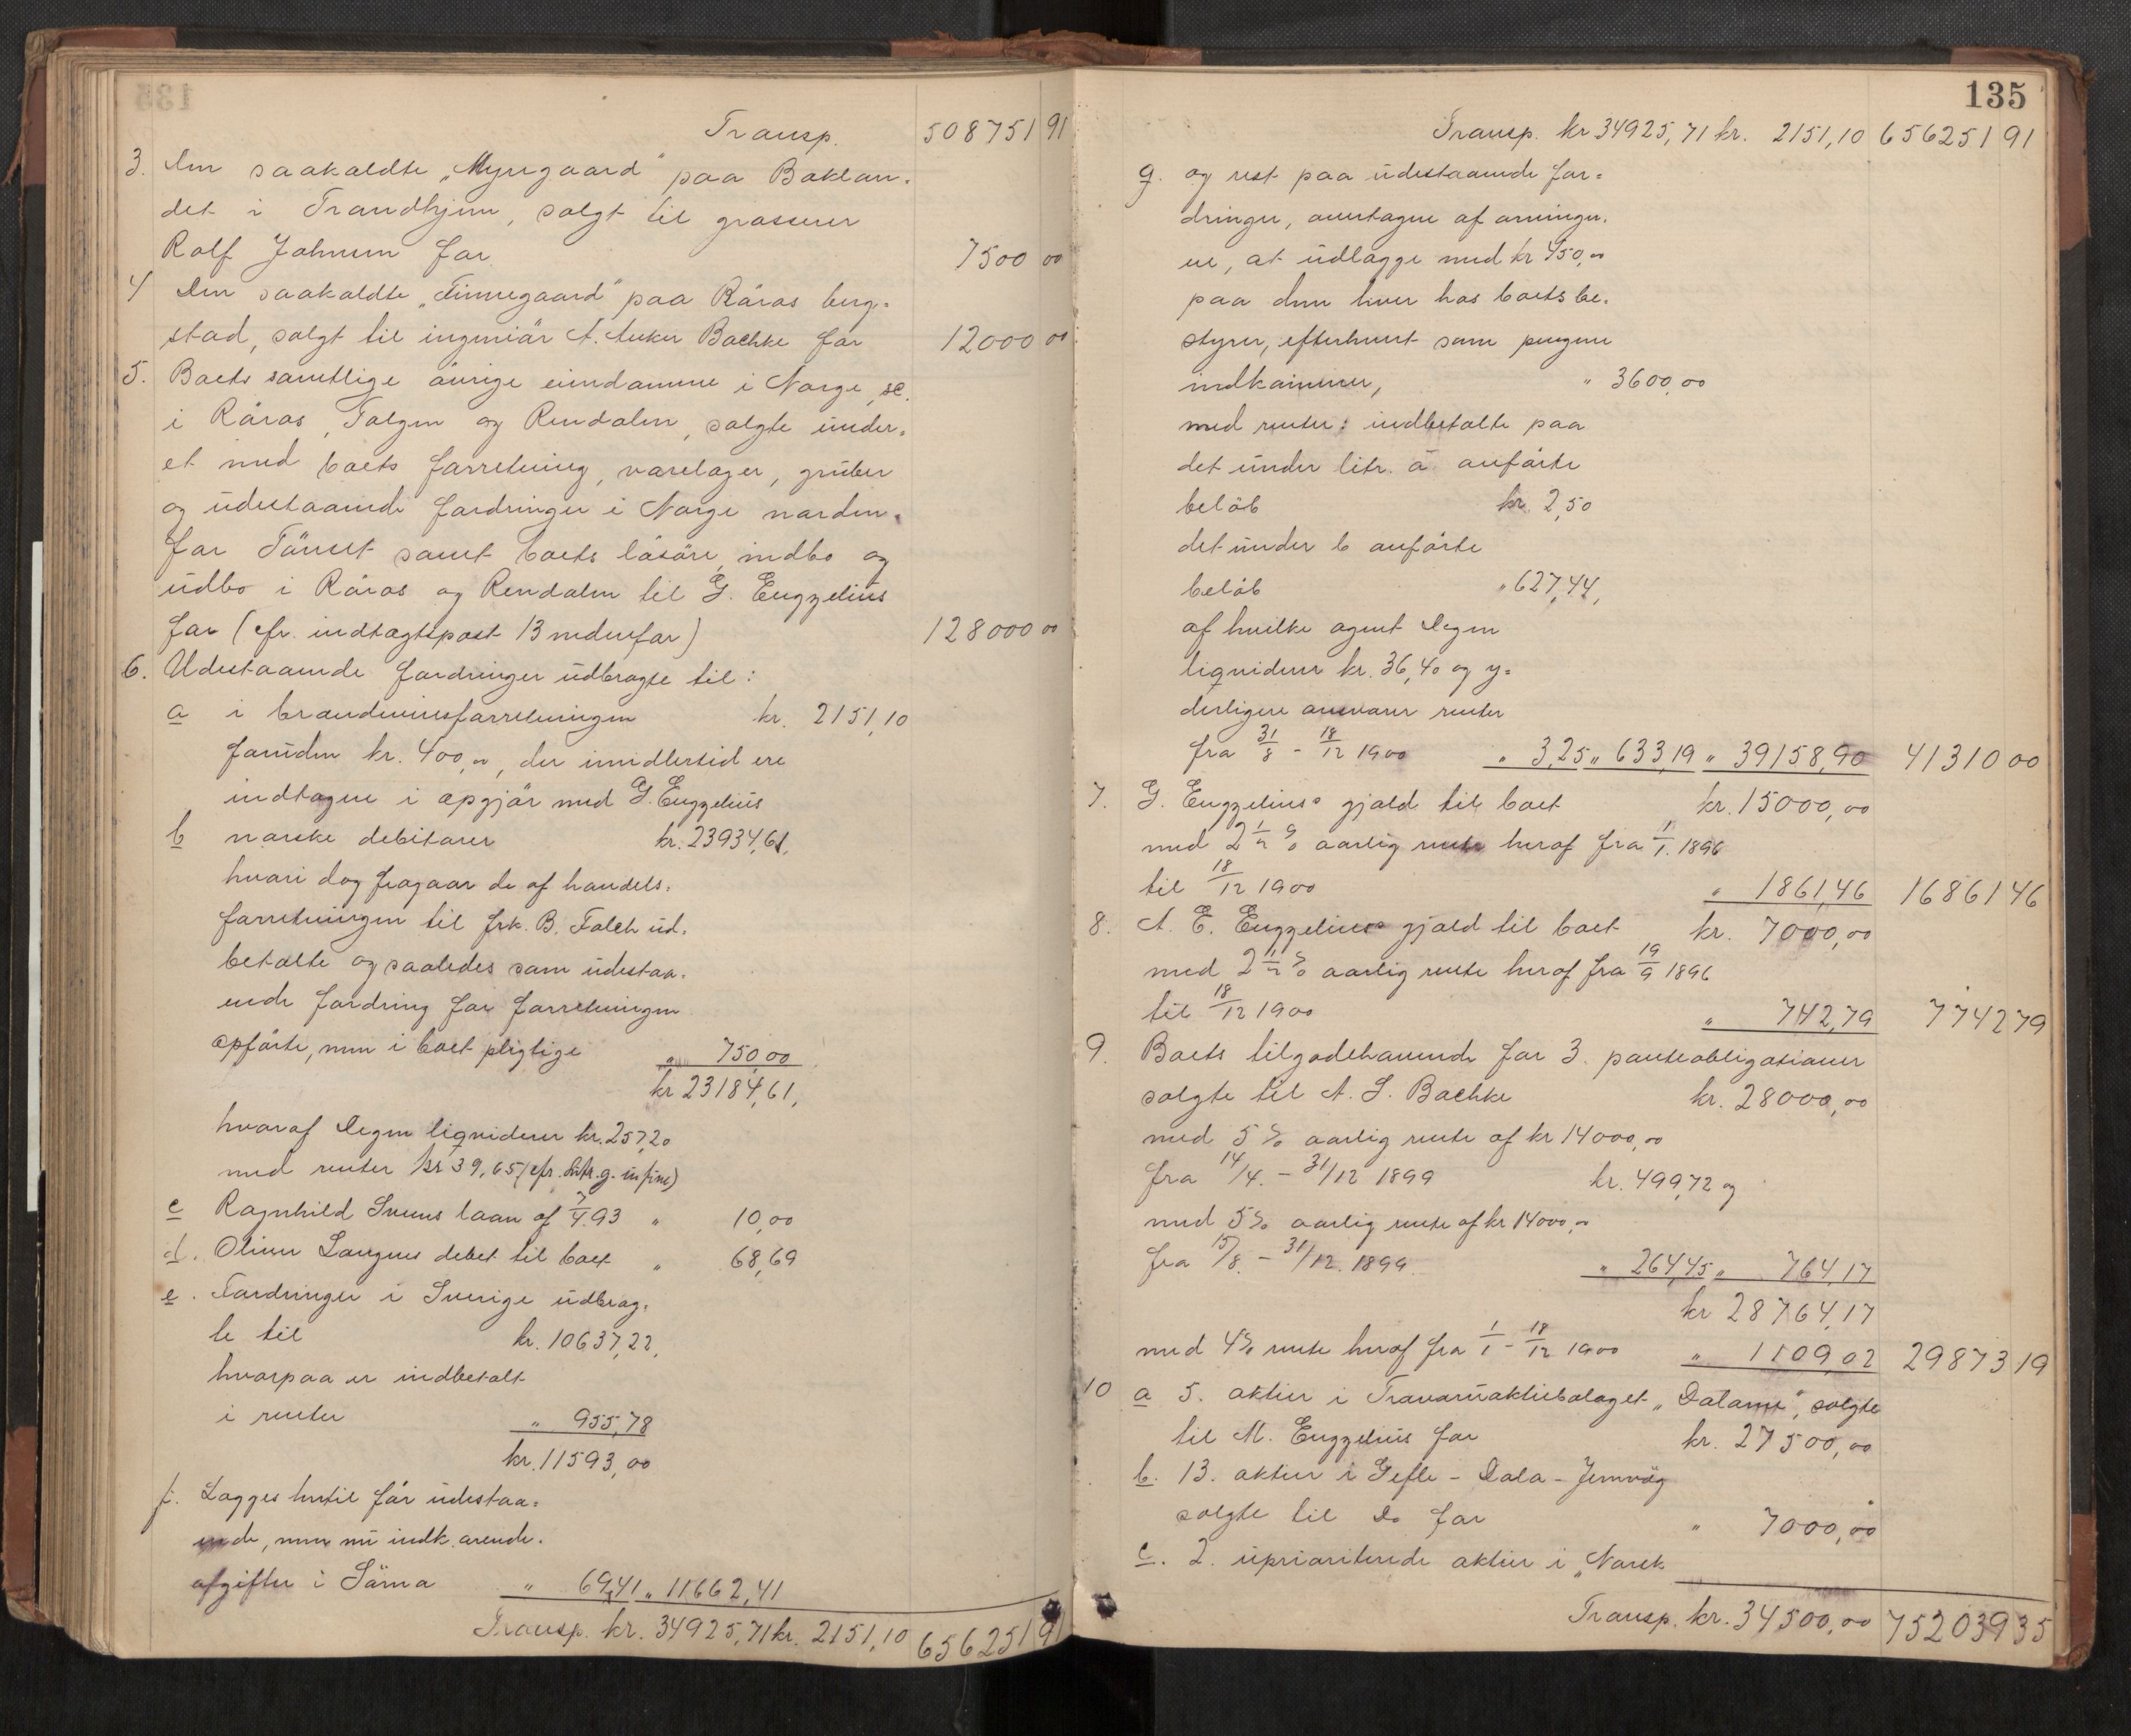 Transp. 508751 91
3. Den saakaldte „Myregaard“ paa Baklan=
det i Trondhjem, solgt til grosserer
Rolf Johnsen for 7500 00
4 Den saakaldte „Finnegaard“ paa Røros berg=
stad, solgt til ingeniør A. Anker Bachke for 12000 00
5. Boets samtlige øvrige eiendomme i Norge, sc.
i Røros, Tolgen og Rendalen, solgte under=
et med boets forretning, varelager, gruber
og udestaaende fordringer i Norge norden=
for Tønset samt boets løsøre, indbo og
udbo i Røros og Rendalen til G. Engzelius
for (cfr. indtægtspost 13 nedenfor) 128000 00
6. Udestaaende fordringer udbragte til:
a i brændevinsforretningen kr. 2151,10
foruden kr. 400,00, der imidlertid ere
indtagne i opgjør med G. Engzelius
b norske debitorer kr. 23934,61,
hvori dog fragaar de af handels=
forretningen til frk. B. Falch ud=
betalte og saaledes som udestaa=
ende fordring for forretningen
opførte, men i boet pligtige „ 750,00
kr 23184,61,
hvoraf Degen liqviderer kr. 257,20
med renter kr 39,65 (cfr. litr. g. in fine)
c Ragnhild Svens laan af 7/4.93 „ 10,00
d. Oliver Langens debet til boet „ 68,69
e. Fordringer i Sverige udbrag=
te til kr. 10637,22,
hvorpaa er indbetalt
i renter „ 955,78
kr. 11593,00
f. Lægges hertil før udestaa=
ende, men nu indk. arende=
afgifter i Särna „ 69,41 „ 11662,41
Transp. kr. 34925,71 kr. 2151,10 656251 91
135
Transp. kr 34925,71 kr. 2151,10 656251 91
g. og rest paa udestaaende for=
dringer, overtagne af arvinger=
ne, at udlægge med kr 450,00
paa den hver hos boets be=
styrer, efterhvert som pengene
indkommer, „ 3600,00
med renter: indbetalte paa
det under litr. a anførte
beløb kr. 2,50
det under b anførte
beløb „ 627,44,
af hvilke agent Degen
liqviderer kr. 36,40 og y=
derligere ansvarer renter
fra 31/8 - 18/12 1900 „ 3,25 „ 633,19 „ 39158,90 41310 00
7. G. Engzelius's gjæld til boet kr. 15000,00
med 2 1/2 % aarlig rente heraf fra 1/1. 1896
til 18/12 1900 „ 1861,46 16861 46
8. A. E. Engzelius's gjæld til boet kr. 7000,00
med 2 1/2 % aarlig rente heraf fra 19/9 1896
til 18/12 1900 „ 742,79 7742 79
9. Boets tilgodehavende for 3. panteobligationer
solgte til A. S. Bachke kr. 28000,00
med 5 % aarlig rente af kr 14000,00
fra 14/4. - 31/12 1899 kr. 499,72 og
med 5 % aarlig rente af kr 14000,00
fra 15/8. - 31/12. 1899. „ 264,45 „ 764,17
kr 28764,17
med 4 % rente heraf fra 1/1 - 18/12 1900 „ 1109,02 29873 19
10 a 5. aktier i Travaruaktiebolaget „Dalarne“, solgte
til M. Engzelius for kr. 27500,00
b. 13. aktier i Gefle - Dala - Jernväg
solgte til Do for „ 7000,00
c. 2. uprioriterede aktier i „Norsk
Transp. kr. 34500,00 752039 35